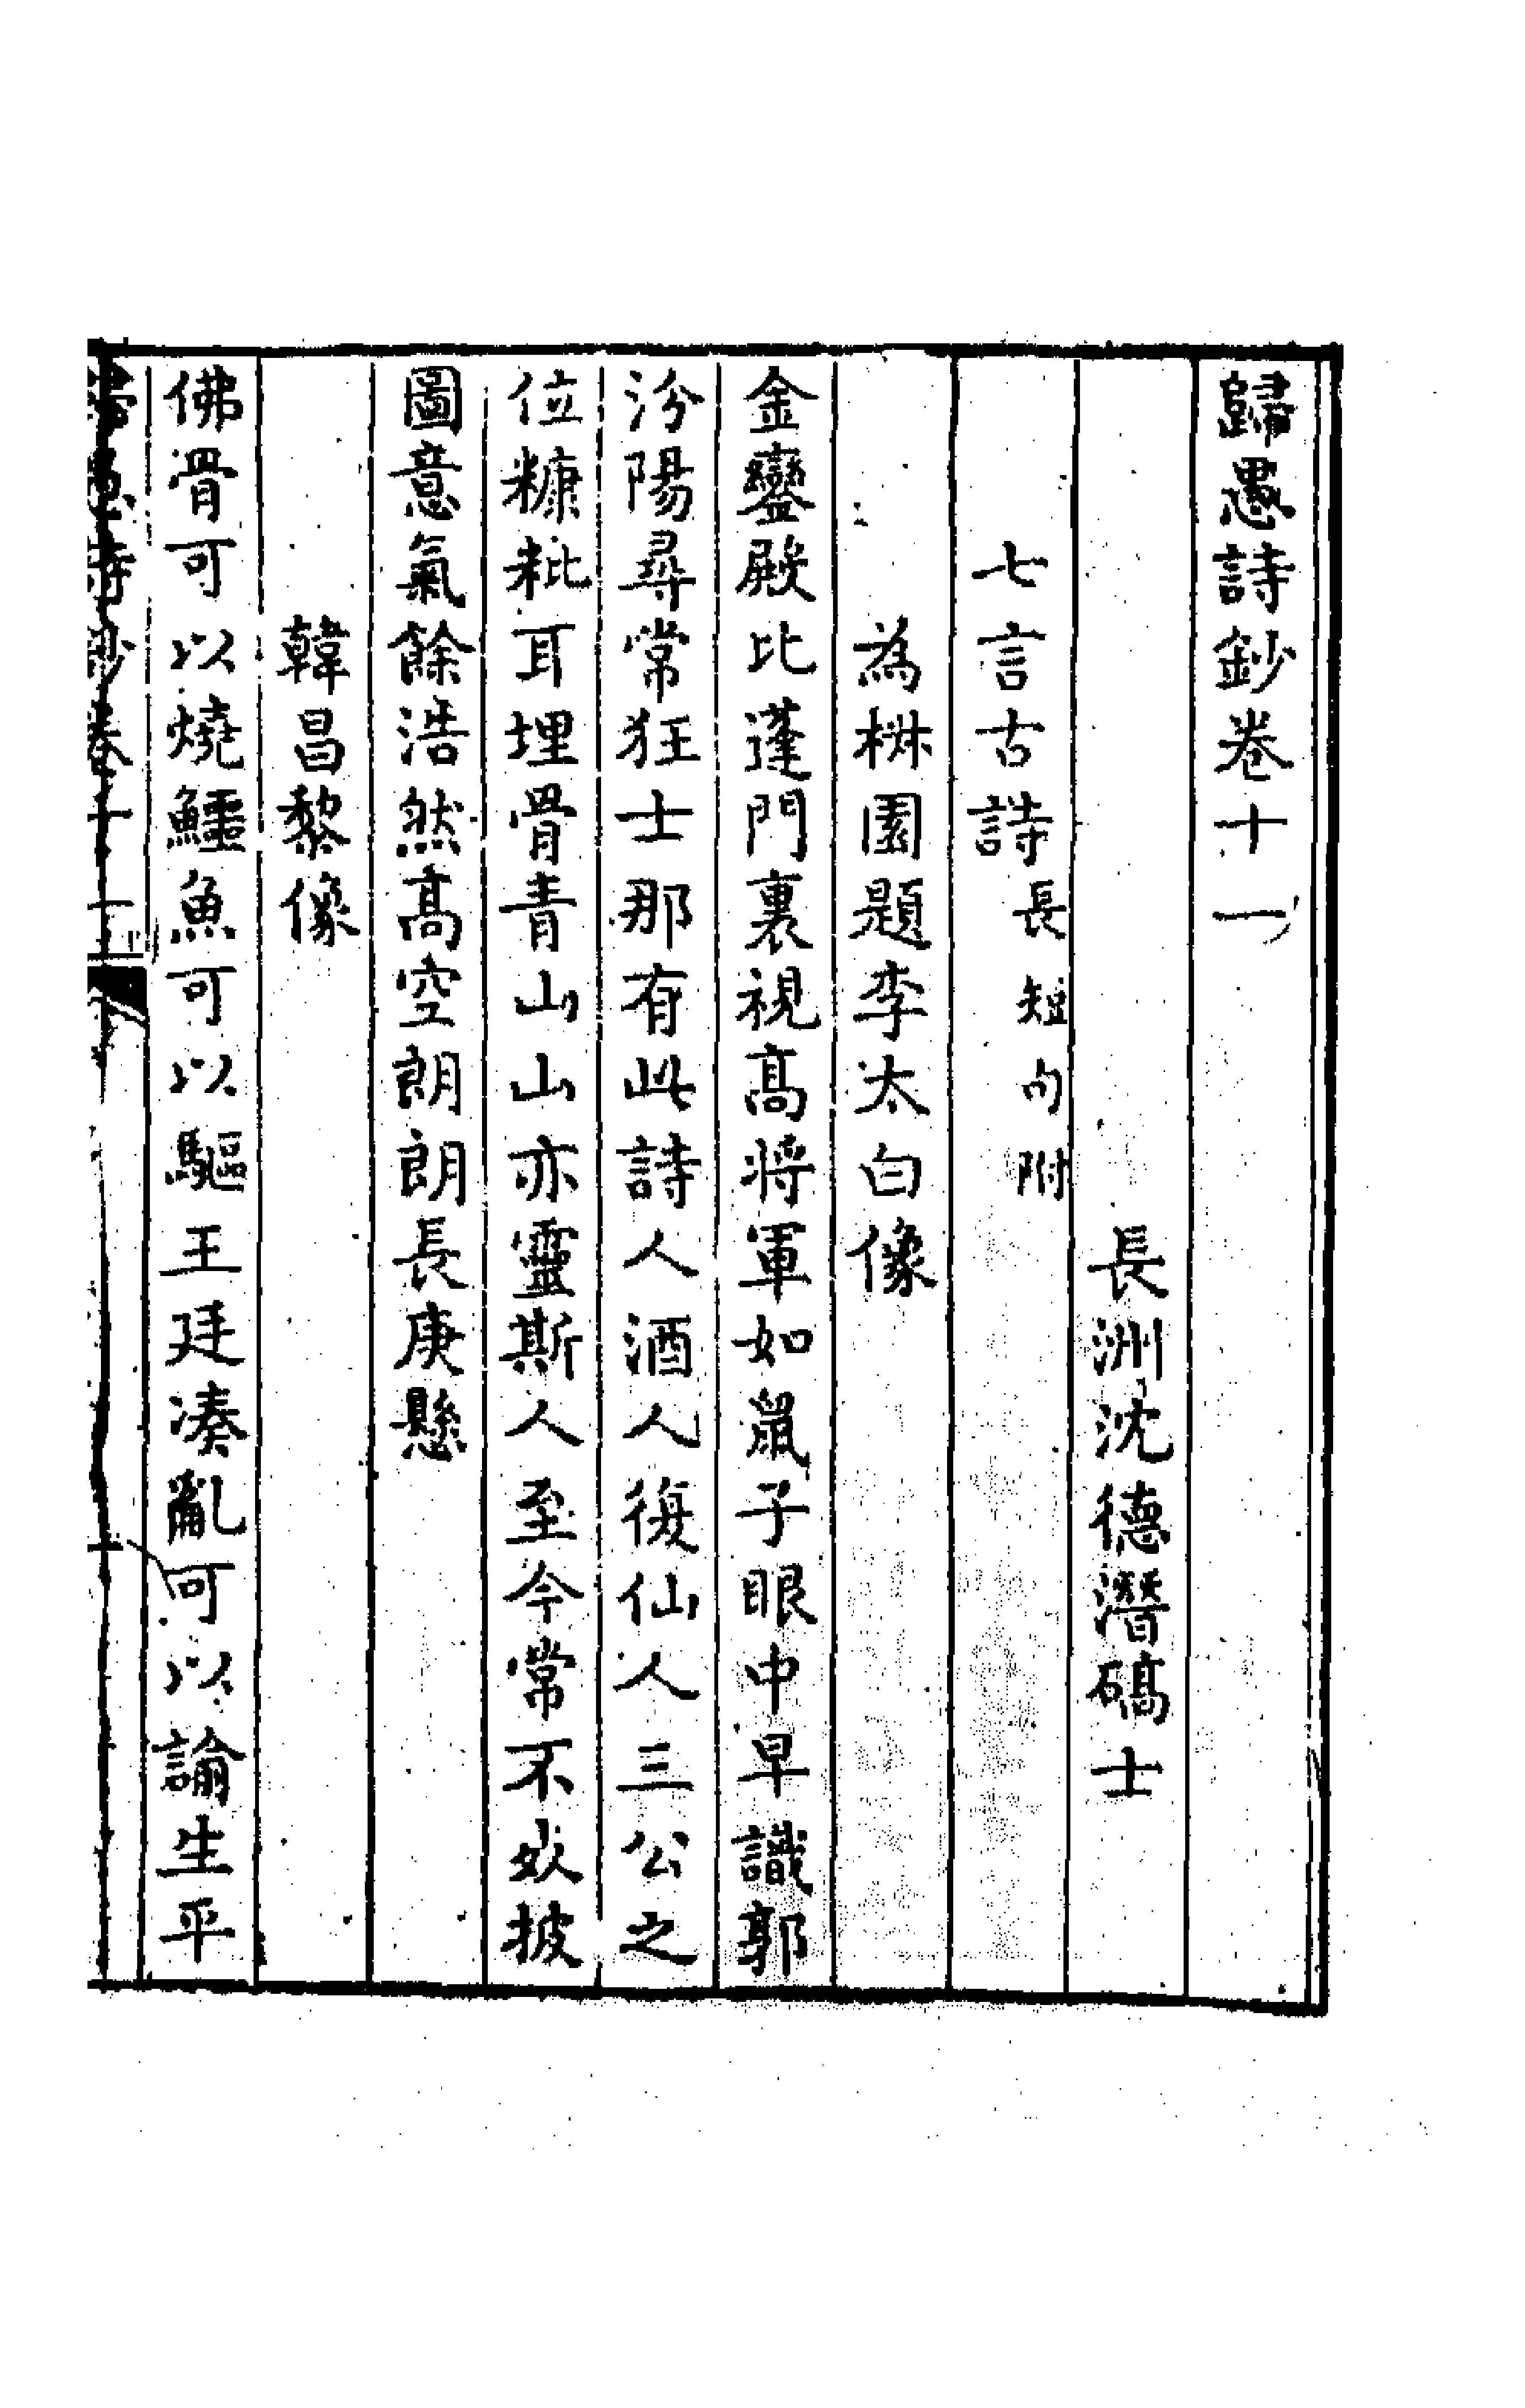 歸愚詩鈔卷十一
長洲沈德潛碻士
七言古詩長短句附
為楙園題李太白像
金鑾殿比蓬門裏視高將軍如鼠子眼中早識郭
汾陽尋常狂士那有此詩人酒人復仙人三公之
位糠粃耳埋骨青山山亦靈斯人至今常不死披
圖意氣餘浩然高空朗朗長庚懸
韓昌黎像
佛骨可以燒鱷魚可以驅王廷湊亂可以諭生平
歸愚詩鈔卷十一